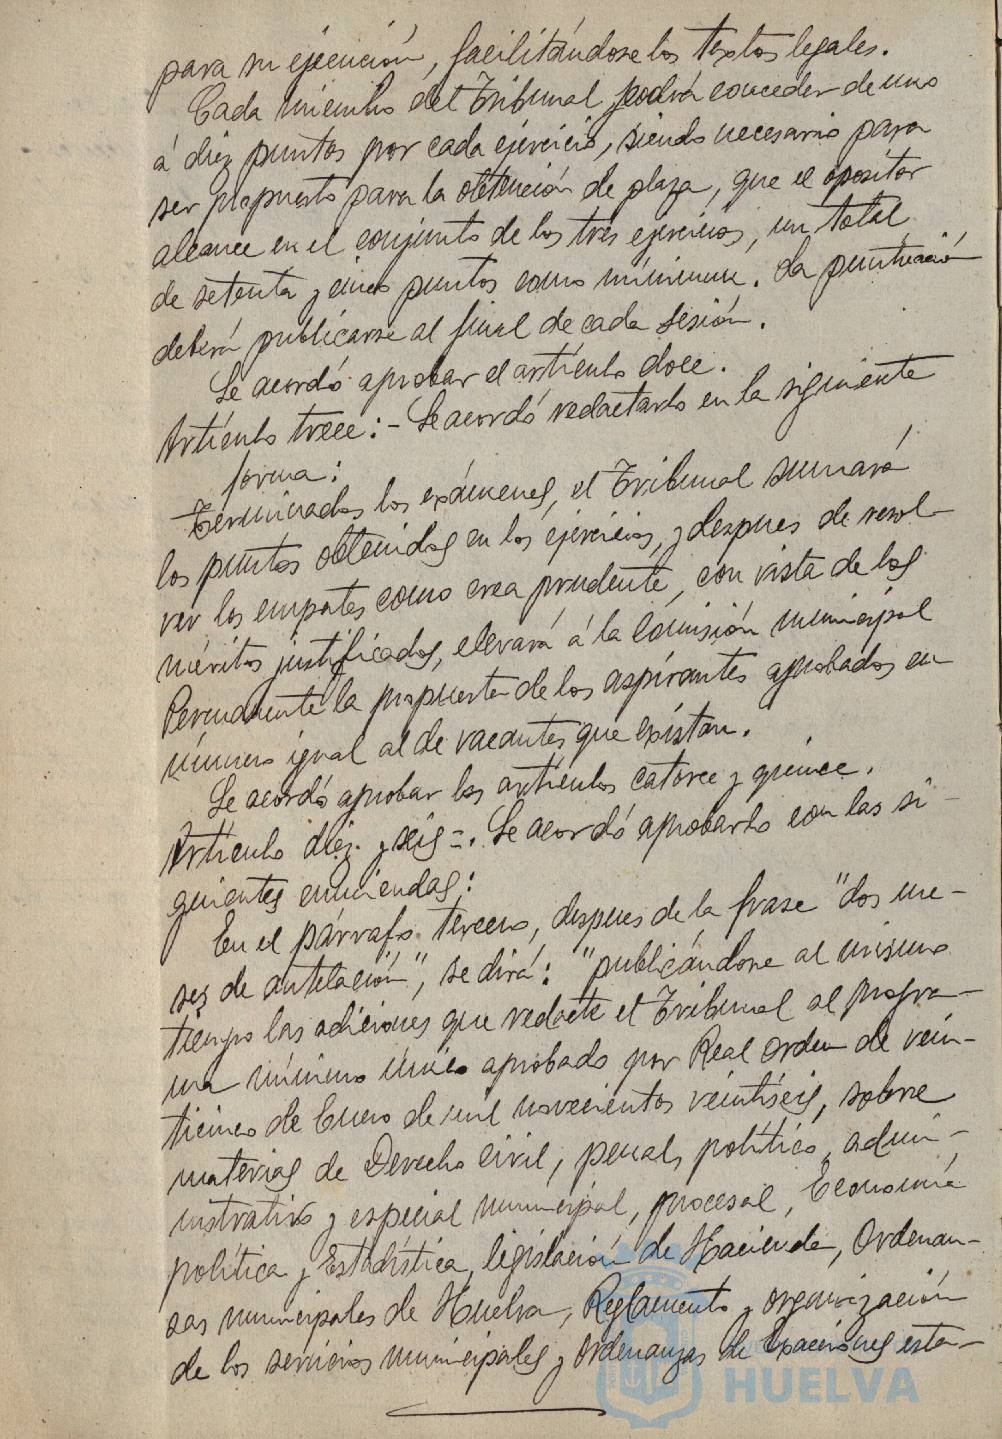 para su ejecución, facilitándose los textos legales.
Cada miembro del Tribunal podrá conceder de uno
á diez puntos por cada ejercicio, siendo necesario para
ser propuesto para la obtención de plaza, que el opositor
alcance en el conjunto de los tres ejercicios, un total
de setenta y cinco puntos como mínimum. La puntuación
deberá publicarse al final de cada sesión.
Se acordó aprobar el artículo doce.
Artículo trece:- Se acordó redactarlo en la siguiente
forma:
Terminados los exámenes, el Tribunal sumará
los puntos obtenidos en los ejercicios, y despues de resol-
ver los empates como crea prudente, con vista de los
méritos justificados, elevará á la Comisión municipal
Permanente la propuesta de los aspirantes aprobados en
número igual al de vacantes que existan.
Se acordó aprobar los artículos catorce y quince.
Artículo diez y seis=. Se acordó aprobarlo con las si-
guientes enmiendas:
En el párrafo tercero, despues de la frase "dos me-
ses de antelación", se dirá: "publicándose al mismo
tiempo las adiciones que redacte el Tribunal al progra-
ma mínimo único aprobado por Real orden de vein-
ticinco de Enero de mil novecientos veintiseis, sobre
materias de Derecho civil, penal, político, admi-
nistrativo y especial municipal, procesal, Economía
política y Estadística, legislación de Hacienda, Ordenan-
zas municipales de Huelva, Reglamento y organización
de los servicios municipales y ordenanzas de Exacciones esta-
HUELVA